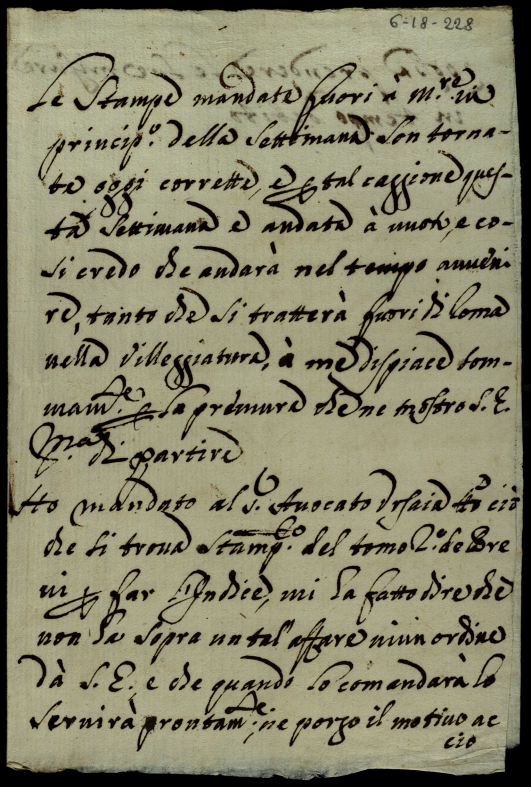 6-18-228
Le Stampe mandate fuori a M.re in
princip.o della Settimana son torna-
te oggi corrette, e p tal caggione ques-
ta Settimana è andata à vuoto, e co-
si credo che andarà nel tempo avveni-
re, tanto che si tratterà fuori di Roma
nella villeggiatura, à me dispiace som-
mam.te p la premura che ne mostrò S. E.
p.ma di partire
Ho mandato al S.r Avvocato tto ciò
che si trova Stamp.o del tomo 2.o de Bre
vi p far l'Indice, mi ha fatto dire che
non ha sopra un tal'affare niun ordine
dà S. E. e che quando lo comandarà lo
servirà prontam.te, ne porgo il motivo ac
ciò